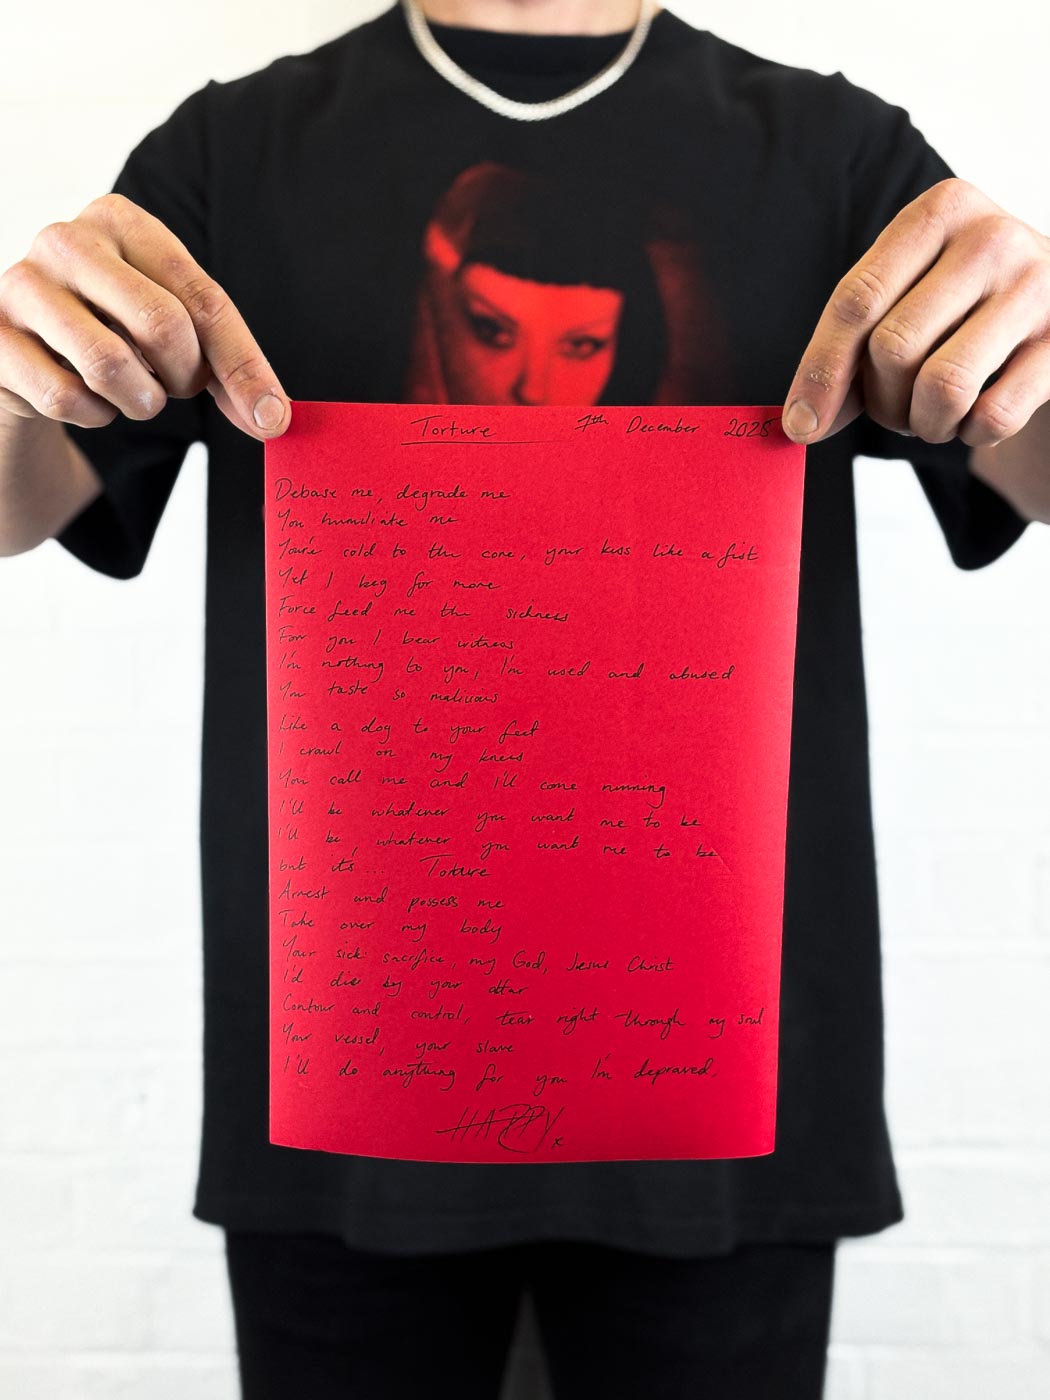 Torture 7th December 2025
Debase me, degrade me
You humiliate me
You're cold to the core, your kiss like a fist
Yet I beg for more
Force feed me the sickness
For you I bear witness
I'm nothing to you, I'm used and abused
You taste so malicious
Like a dog to your feet
I crawl on my knees
You call me and I'll come running
I'll be whatever you want me to be
I'll be whatever you want me to be
but it's... Torture
Arrest and possess me
Take over my body
Your sick sacrifice, my God, Jesus Christ
I'd die by your altar
Contour and control, tear right through my soul
Your vessel, your slave
I'll do anything for you I'm depraved.
HAPPY x